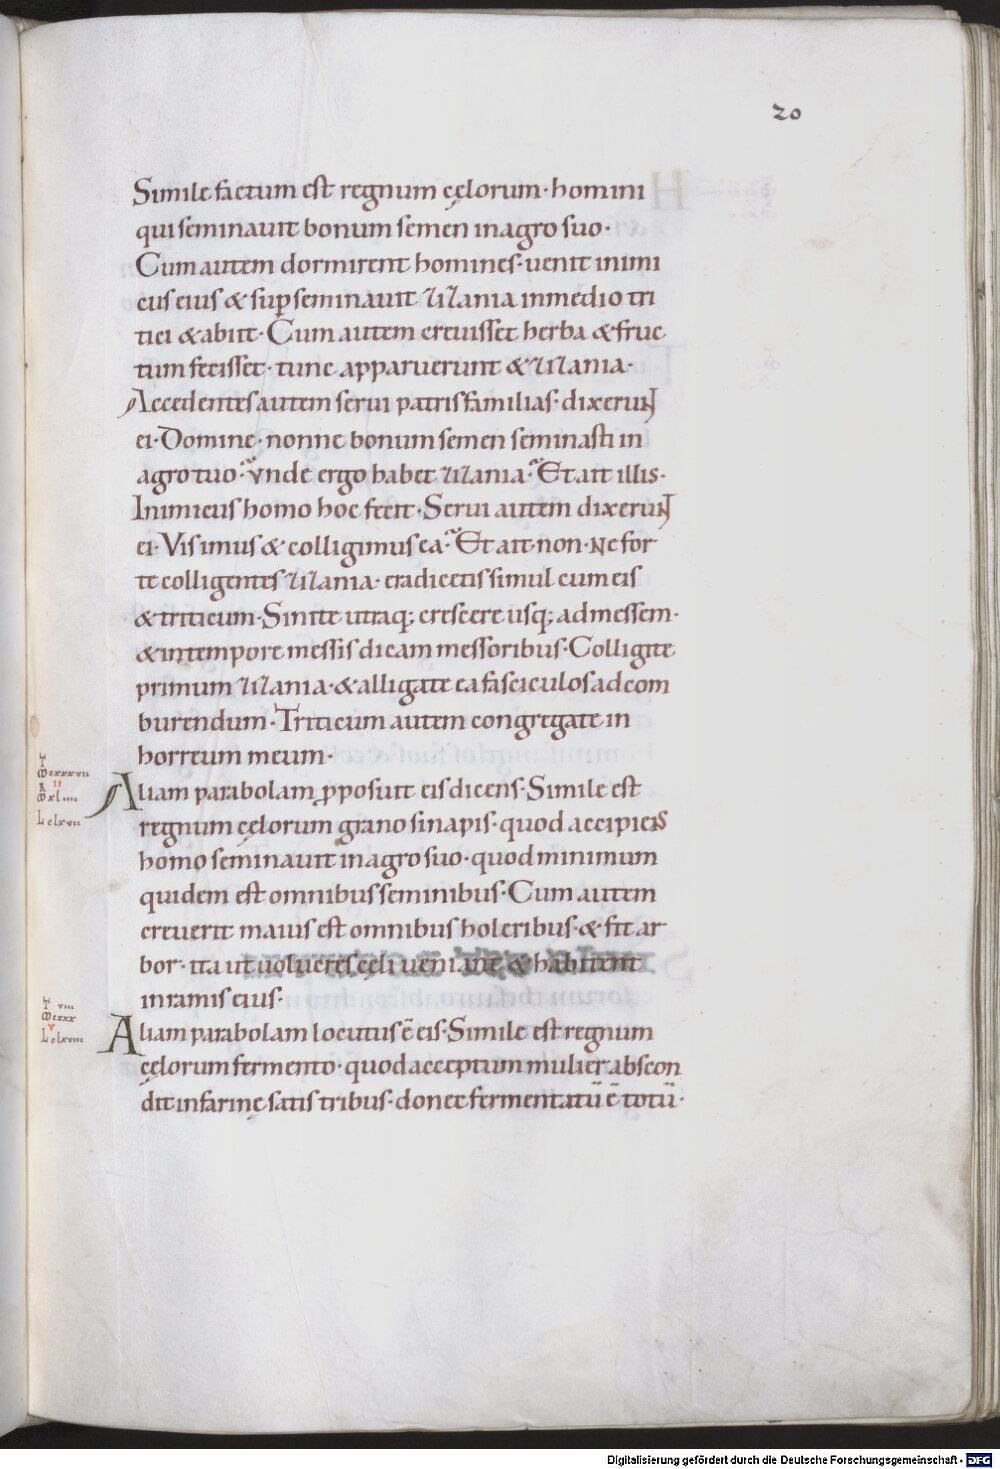 20
Simile factum est regnum cęlorum· homini
qui seminavit bonum semen in agro suo·
Cum autem dormirent homines· venit inimi
cus eius & sup̱seminavit zizania in medio tri
tici & abiit· Cum autem crevisset herba & fruc
tum fecisset· tunc apparuerunt & zizania·
Accedentes autem servi patris familias· dixerunt
ei· Domine· nonne bonum semen seminasti in
agro tuo· Unde ergo habet zizania· Et ait illis·
Inimicus homo hoc fecit· Servi autem dixerunt
ei· Vis imus & colligimus ea· Et ait· non· Ne for
te colligentes zizania· eradicetis simul cum eis
& triticum· Sinite utraq; crescere usq; ad messem·
& in tempore messis dicam messoribus· Colligite
primum zizania· & alligate ea fasciculos ad com
burendum· Triticum autem congregate in
horreum meum·
M cxxxvii
M xliiii
L clxvii
Aliam parabolam ꝓposuit eis dicens· Simile est
regnum cęlorum grano sinapis· quod accipiens
homo seminavit in agro suo· quod minimum
quidem est omnibus seminibus· Cum autem
creverit maius est omnibus holeribus· & fit ar
bor· ita ut volucres cęli veniant & habitent
in ramis eius·
M cxxx
L clxviii
Aliam parabolam locutus ē eis· Simile est regnum
cęlorum fermento· quod acceptum mulier abscon
dit in farinę satis tribus· donec fermentatū ē totū·
Digitalisierung gefördert durch die Deutsche Forschungsgemeinschaft - DFG